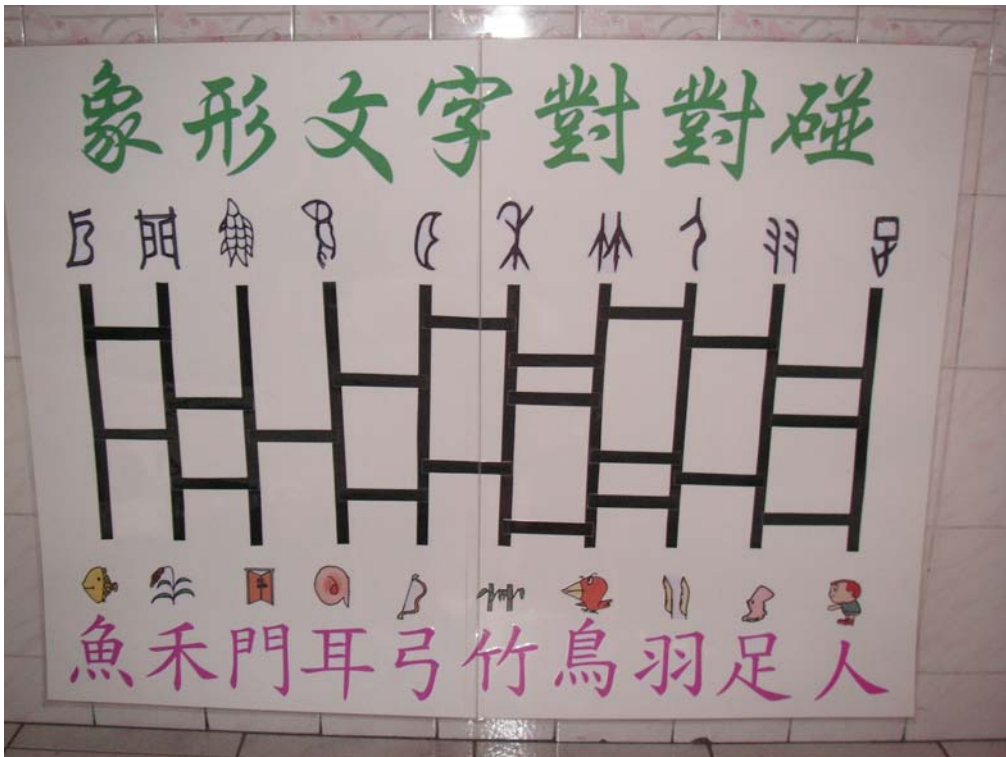 象形文字對對碰
魚禾門耳弓竹鳥羽足人